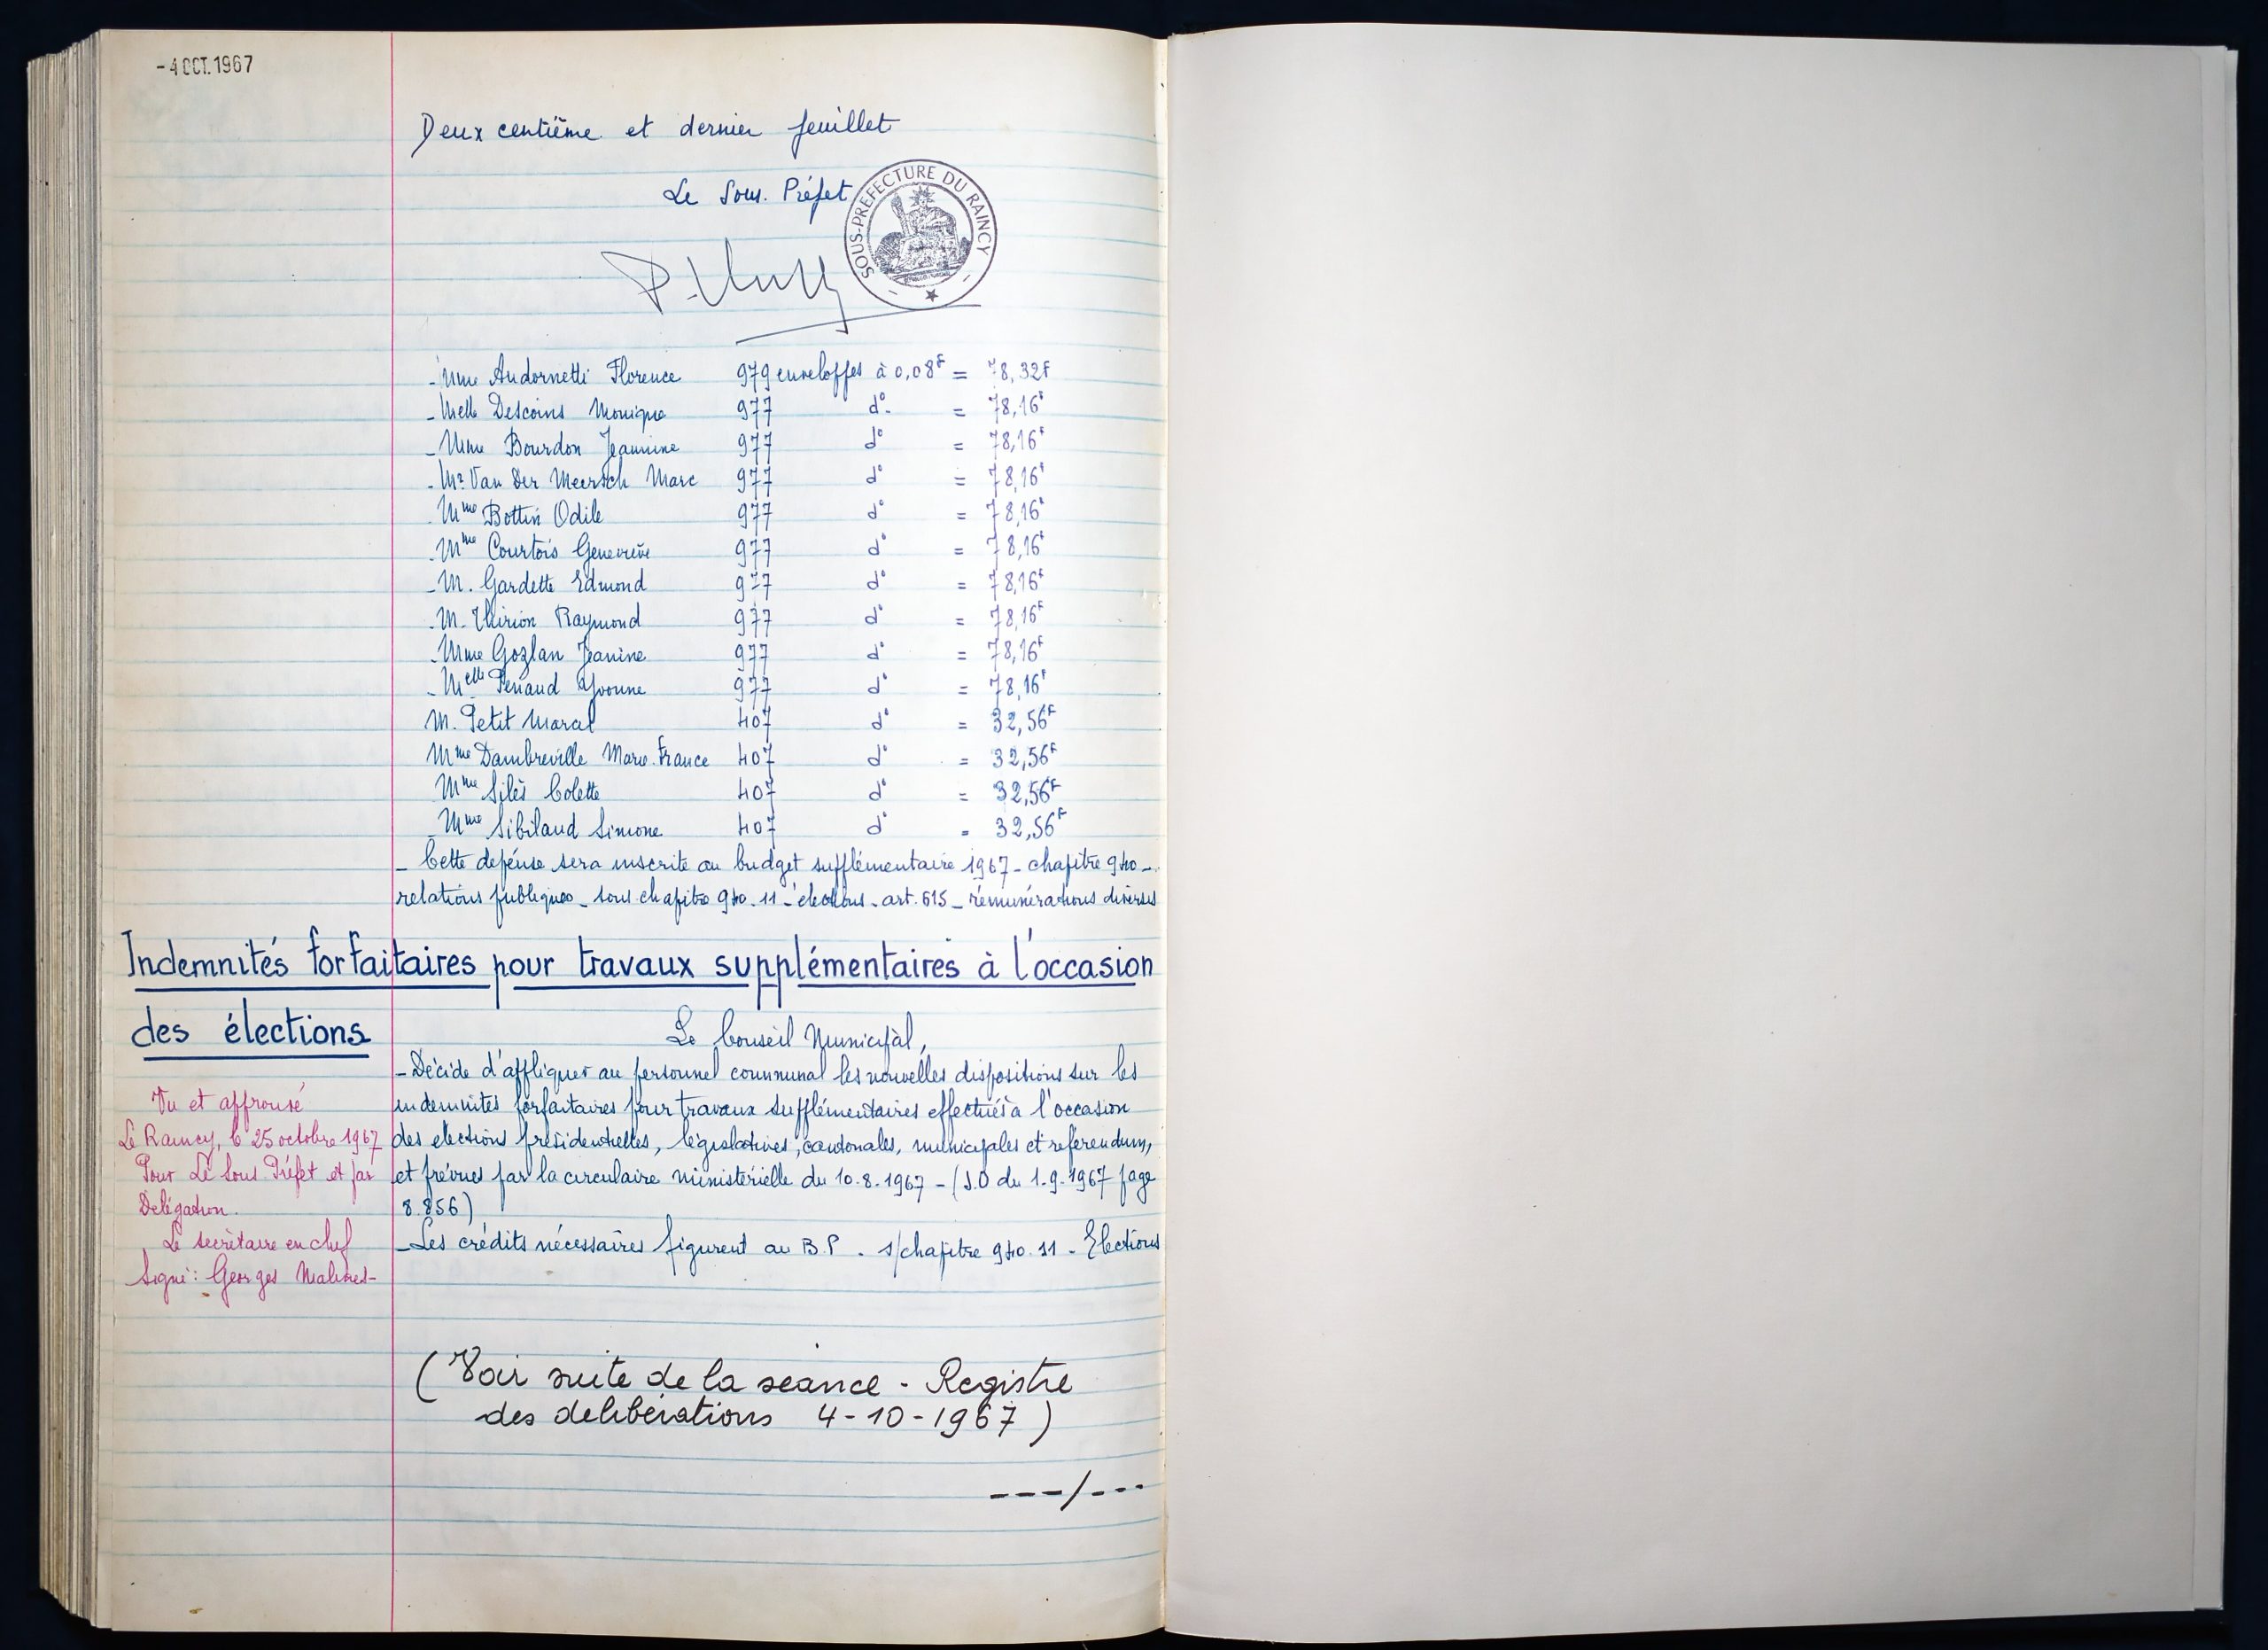 - 4 OCT. 1967
Deux centième et dernier feuillet
Le Sous. Préfet
SOUS-PREFECTURE DU RAINCY
- Mme Andornetti Florence 979 enveloppes à 0,08F = 78,32F
- Melle Descoins Monique 977 d°. = 78,16F
- Mme Bourdon Jeannine 977 d° = 78,16F
- Mr Van Der Meersch Marc 977 d° = 78,16F
- Mme Bottin Odile 977 d° = 78,16F
- Mme Courtois Geneviève 977 d° = 78,16F
- M. Gardette Edmond 977 d° = 78,16F
- M. Thirion Raymond 977 d° = 78,16F
- Mme Gozlan Jeanine 977 d° = 78,16F
- Melle Penaud Yvonne 977 d° = 78,16F
M. Petit Marcel 407 d° = 32,56F
Mme Dambreville Marie-France 407 d° = 32,56F
Mme Silès Colette 407 d° = 32,56F
- Mme Sibilaud Simone 407 d° = 32,56F
- Cette dépense sera inscrite au budget supplémentaire 1967 - chapitre 940 -
relations publiques - sous chapitre 940.11 - élections - art. 615 - rémunérations diverses
Indemnités forfaitaires pour travaux supplémentaires à l'occasion
des élections
Le Conseil Municipal,
- Décide d'appliquer au personnel communal les nouvelles dispositions sur les
indemnités forfaitaires pour travaux supplémentaires effectués à l'occasion
des élections présidentielles, législatives, cantonales, municipales et referendum,
et prévues par la circulaire ministérielle du 10.8.1967 - (J.O du 1.9.1967 page
8.856)
- Les crédits nécessaires figurent au B.P. s/chapitre 940.11 - Elections
Vu et approuvé
Le Raincy, le 25 octobre 1967
Pour Le Sous Préfet et par
Délégation.
Le secrétaire en chef
Signé : Georges
(Voir suite de la séance - Registre
des délibérations 4-10-1967)
---/---